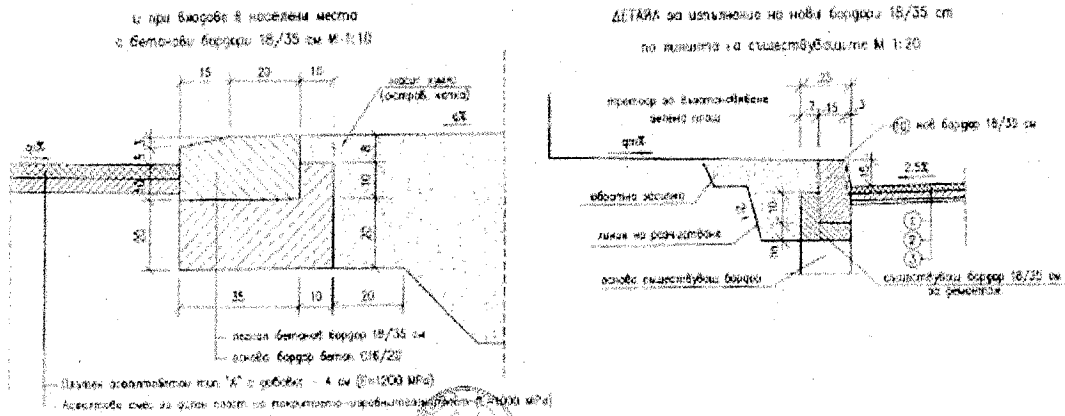 и при входове в населени места
с бетонови бордюри 18/35 см М 1:10
15 20 10
(остров, капка)
q%
q%
5 3
10
20
8
10
20
35 10 20
легнал бетонов бордюр 18/35 см
основа бордюр бетон C16/20
Плътен асфалтобетон тип "А" с добавки - 4 см (E=1200 MPa)
Асфалтова смес за долен пласт на покритието
ДЕТАЙЛ за изпълнение на нови бордюри 18/35 cm
по линията на съществуващите М 1:20
25
7 15 3
тротоар за възстановяване
зелена площ
нов бордюр 18/35 см
2.5%
15
обратна засипка
10
2:1
линия на разкъртване
10
основа съществуващ бордюр
1
2
3
съществуващ бордюр 18/35 см
за демонтаж